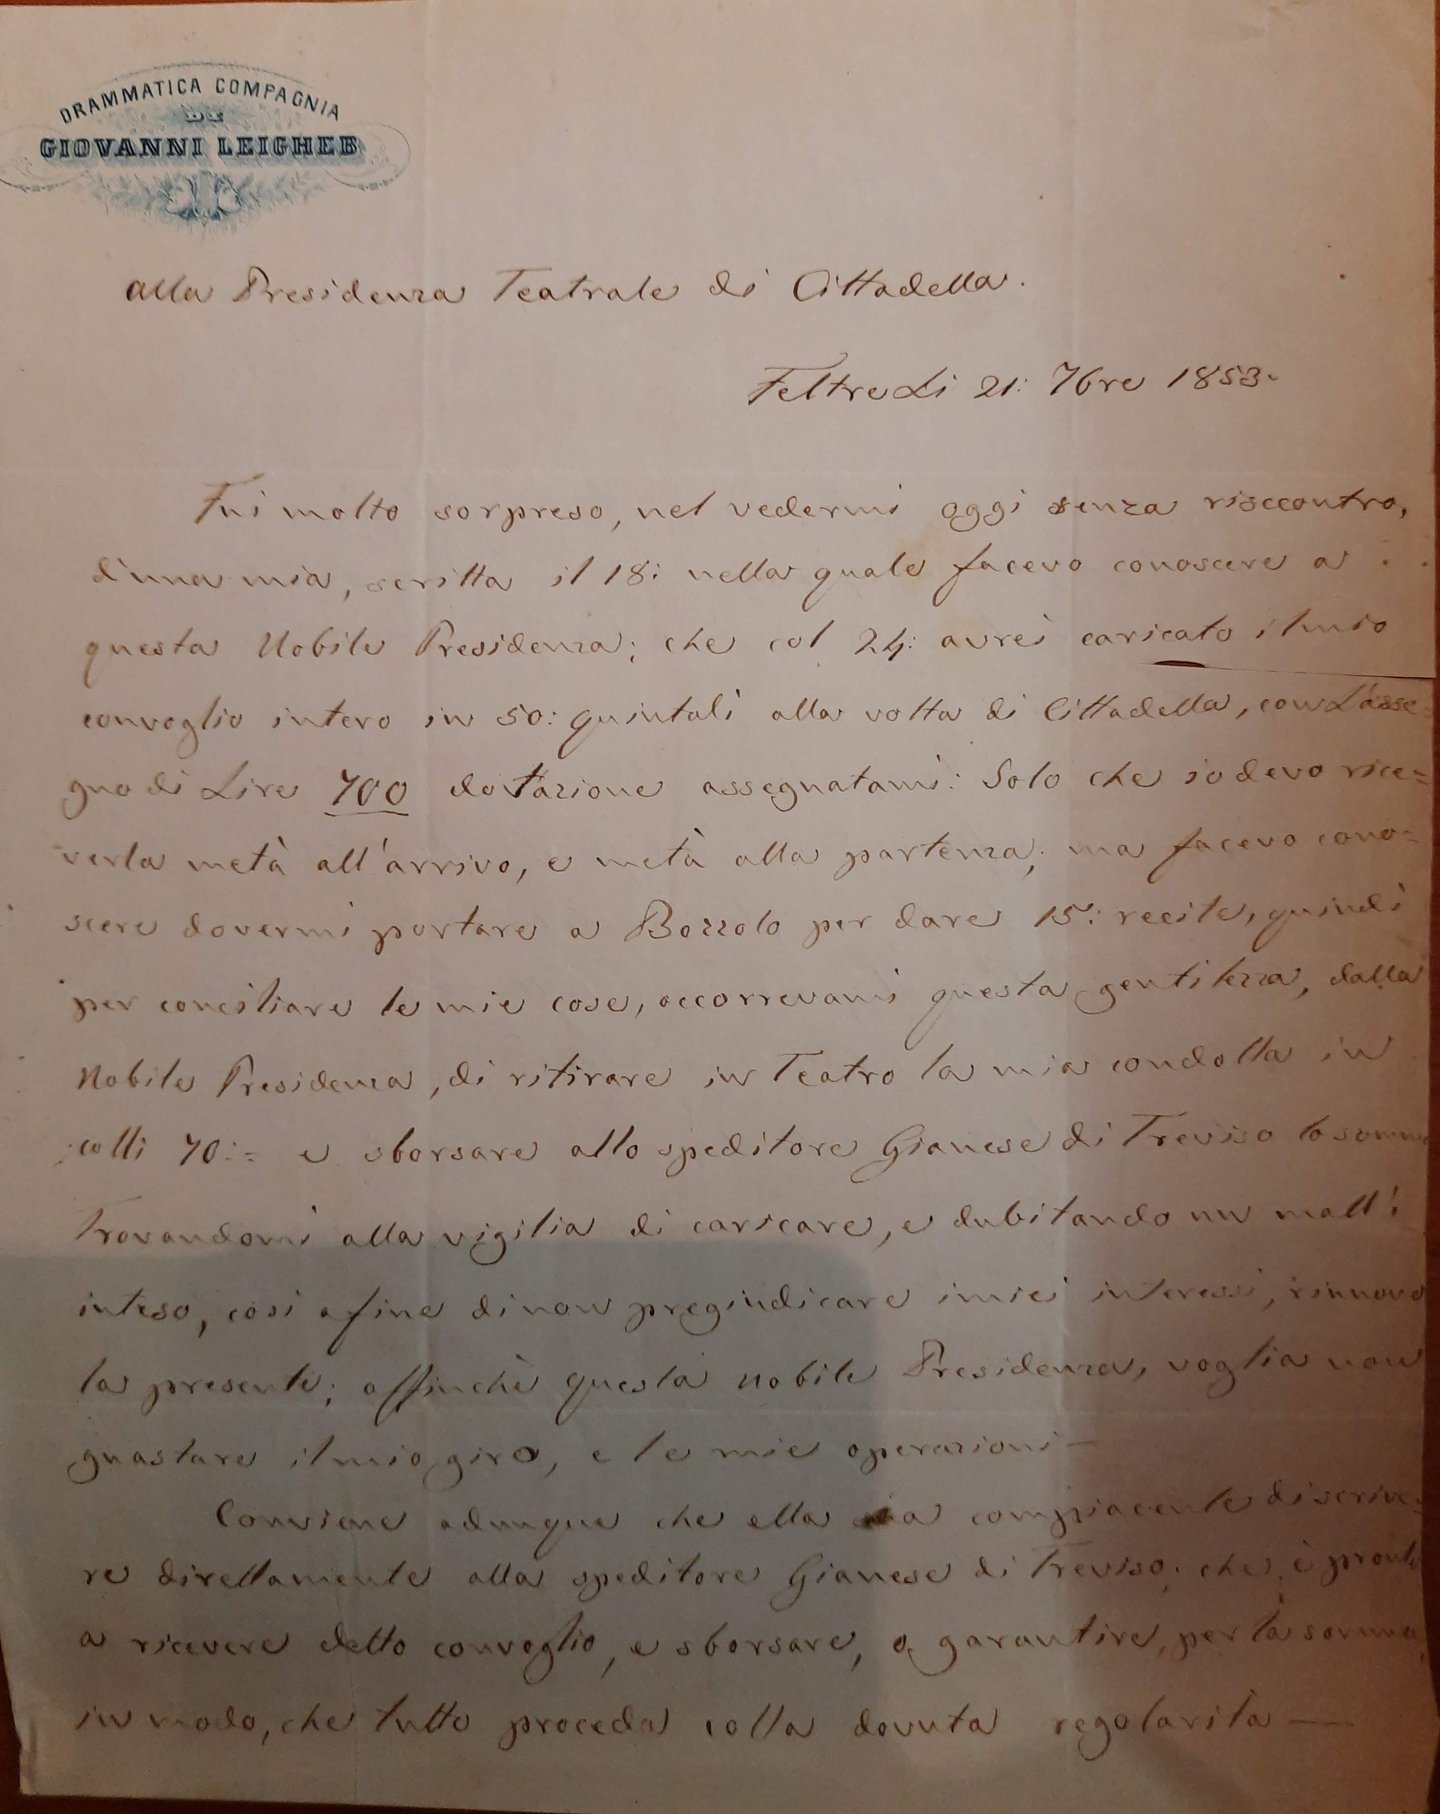 DRAMMATICA COMPAGNIA
DI
GIOVANNI LEIGHEB
Alla Presidenza Teatrale di Cittadella.
Feltre Li 21: 7bre 1853.
Fui molto sorpreso, nel vedermi oggi senza riseccontro,
d'una mia, scritta il 18: nella quale facevo conoscere a
questa Nobile Presidenza; che col 24: avrei caricato il mio
convoglio intero in 50: quintali alla volta di Cittadella, con L'asse=
gno di Lire 700 dottazione assegnatami: Solo che io devo rice=
verla metà all'arrivo, e metà alla partenza; ma facevo cono=
scere dovermi portare a Bozzolo per dare 15: recite, quindi
per conciliare le mie cose, occorrevami questa gentilezza, dalla
Nobile Presidenza, di ritirare in Teatro la mia condotta in
colli 70:= e sborsare allo speditore Gianese di Treviso la somma
Trovandomi alla vigilia di caricare, e dubitando un mall'
inteso, così afine di non pregiudicare i miei interessi, rinnovo
la presente; affinchè questa nobile Presidenza, voglia non
guastare il mio giro, e le mie operazioni —
Conviene adunque che ella sia compiacente di scrive=
re direttamente alla speditore Gianese di Treviso; che è pronta
a ricevere detto convoglio, e sborsare, o garantire, per la somma,
in modo, che tutto proceda colla dovuta regolarità —